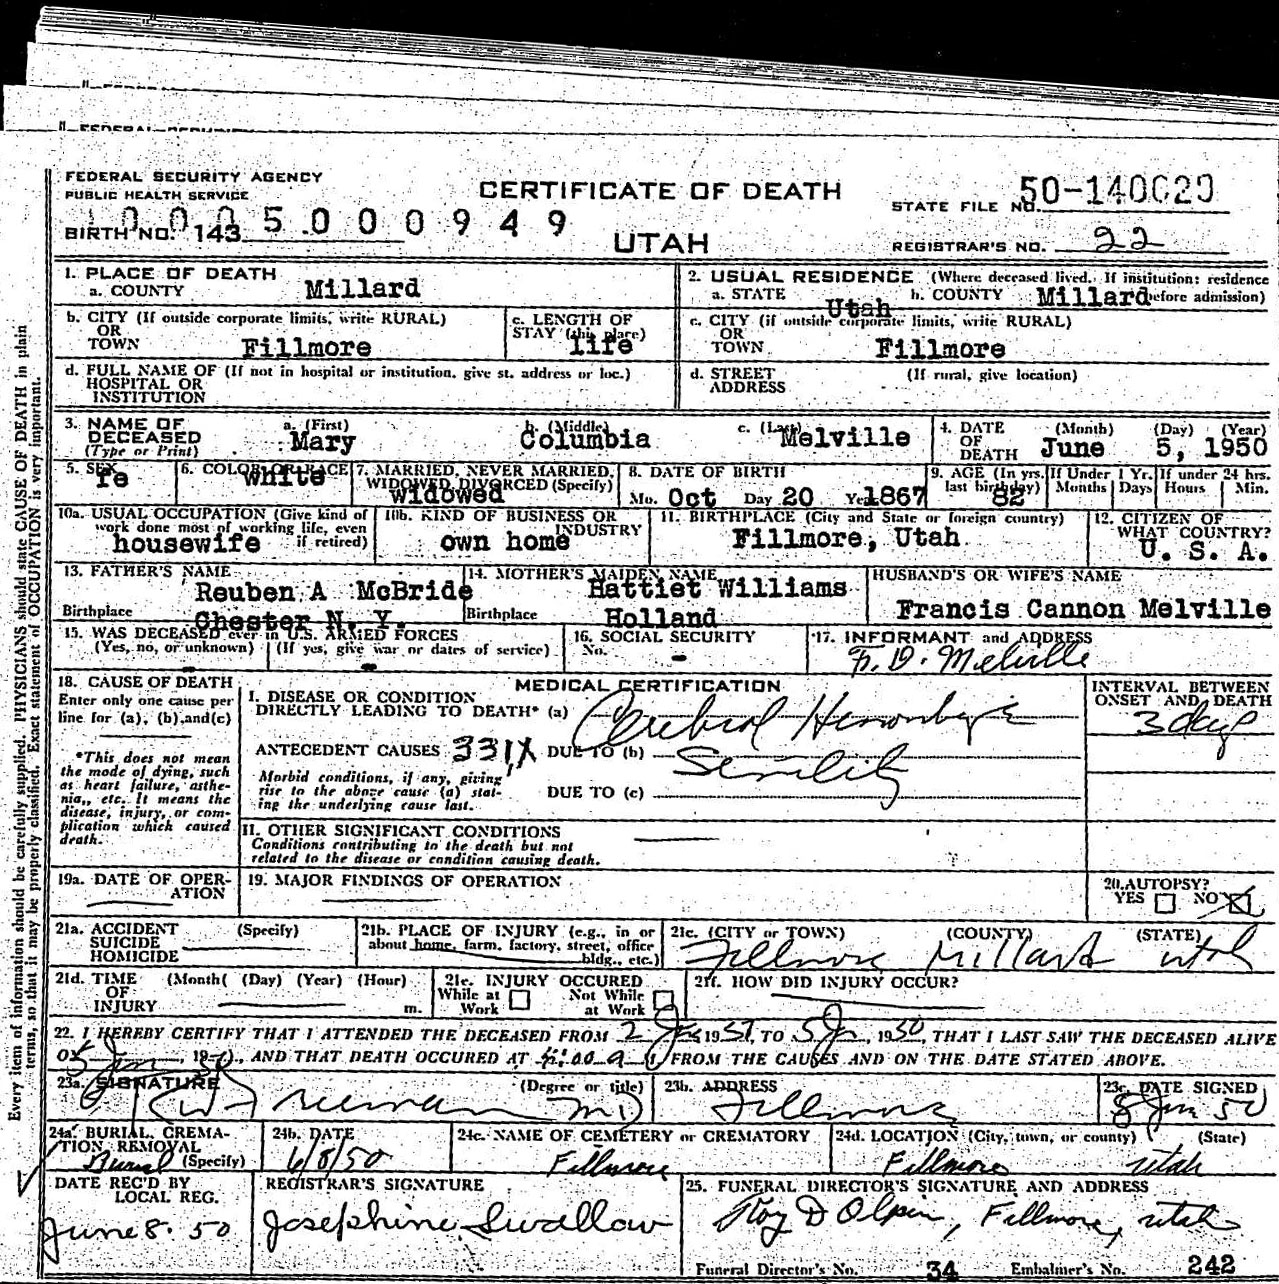 FEDERAL SECURITY AGENCY
PUBLIC HEALTH SERVICE
CERTIFICATE OF DEATH
UTAH
STATE FILE NO. 50-140020
BIRTH NO. 143
5 0 0 0 9 4 9
REGISTRAR'S NO. 22
Every item of information should be carefully supplied. PHYSICIANS should state CAUSE OF DEATH in plain
terms, so that it may be properly classified. Exact statement of OCCUPATION is very important.
1. PLACE OF DEATH
a. COUNTY Millard
2. USUAL RESIDENCE (Where deceased lived. If institution: residence
a. STATE Utah b. COUNTY Millard before admission)
b. CITY (If outside corporate limits, write RURAL)
OR
TOWN Fillmore
c. LENGTH OF
STAY (this place)
life
c. CITY (if outside corporate limits, write RURAL)
OR
TOWN Fillmore
d. FULL NAME OF (If not in hospital or institution, give st. address or loc.)
HOSPITAL OR
INSTITUTION
d. STREET (If rural, give location)
ADDRESS
3. NAME OF
DECEASED
(Type or Print)
a. (First) Mary
b. (Middle) Columbia
c. (Last) Melville
4. DATE (Month) (Day) (Year)
OF
DEATH June 5, 1950
5. SEX fe
6. COLOR OR RACE white
7. MARRIED, NEVER MARRIED,
WIDOWED, DIVORCED (Specify)
widowed
8. DATE OF BIRTH
Mo. Oct Day 20 Yr. 1867
9. AGE (In yrs. last birthday) 82
If Under 1 Yr. Months Days
If under 24 hrs. Hours Min.
10a. USUAL OCCUPATION (Give kind of
work done most of working life, even
if retired) housewife
10b. KIND OF BUSINESS OR
INDUSTRY own home
11. BIRTHPLACE (City and State or foreign country)
Fillmore, Utah
12. CITIZEN OF
WHAT COUNTRY?
U. S. A.
13. FATHER'S NAME
Reuben A McBride
Birthplace Chester N. Y.
14. MOTHER'S MAIDEN NAME
Hattiet Williams
Birthplace Holland
HUSBAND'S OR WIFE'S NAME
Francis Cannon Melville
15. WAS DECEASED ever in U.S. ARMED FORCES
(Yes, no, or unknown) (If yes, give war or dates of service)
- -
16. SOCIAL SECURITY
No. -
17. INFORMANT and ADDRESS
F. D. Melville
18. CAUSE OF DEATH
Enter only one cause per
line for (a), (b), and (c)
*This does not mean
the mode of dying, such
as heart failure, asthe-
nia, etc. It means the
disease, injury, or com-
plication which caused
death.
MEDICAL CERTIFICATION
I. DISEASE OR CONDITION
DIRECTLY LEADING TO DEATH* (a) Cerebral Hemorrhage
ANTECEDENT CAUSES 331X DUE TO (b) Senility
Morbid conditions, if any, giving
rise to the above cause (a) stat-
ing the underlying cause last.
DUE TO (c)
INTERVAL BETWEEN
ONSET AND DEATH
3 days
II. OTHER SIGNIFICANT CONDITIONS
Conditions contributing to the death but not
related to the disease or condition causing death.
19a. DATE OF OPER-
ATION
19. MAJOR FINDINGS OF OPERATION
20. AUTOPSY?
YES NO X
21a. ACCIDENT (Specify)
SUICIDE
HOMICIDE
21b. PLACE OF INJURY (e.g., in or
about home, farm, factory, street, office
bldg., etc.)
21c. (CITY or TOWN) (COUNTY) (STATE)
Fillmore Millard Utah
21d. TIME (Month) (Day) (Year) (Hour)
OF
INJURY m.
21e. INJURY OCCURED
While at Work Not While at Work
21f. HOW DID INJURY OCCUR?
22. I HEREBY CERTIFY THAT I ATTENDED THE DECEASED FROM 2 19 TO 5 Jun, 1950, THAT I LAST SAW THE DECEASED ALIVE
ON 5 Jun 1950, AND THAT DEATH OCCURED AT :00 a M FROM THE CAUSES AND ON THE DATE STATED ABOVE.
23a. SIGNATURE (Degree or title)
Freeman MD
23b. ADDRESS
Fillmore
23c. DATE SIGNED
8 Jun 50
24a. BURIAL, CREMA-
TION REMOVAL
Burial (Specify)
24b. DATE
6/8/50
24c. NAME OF CEMETERY or CREMATORY
Fillmore
24d. LOCATION (City, town, or county) (State)
Fillmore Utah
DATE REC'D BY
LOCAL REG.
June 8. 50
REGISTRAR'S SIGNATURE
Josephine Swallow
25. FUNERAL DIRECTOR'S SIGNATURE AND ADDRESS
Floy D Olpin, Fillmore, Utah
Funeral Director's No. 34 Embalmer's No. 242